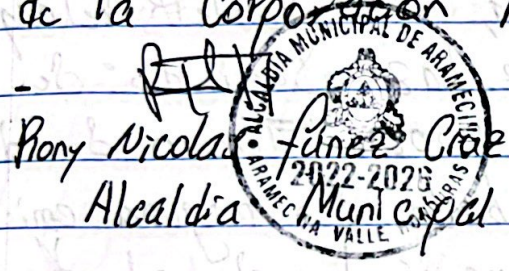 de la Corporación
-
Rony Nicolas Funez Cruz
Alcaldia Municipal
ALCALDIA MUNICIPAL DE ARAMECINA
2022-2026
ARAMECINA VALLE HONDURAS